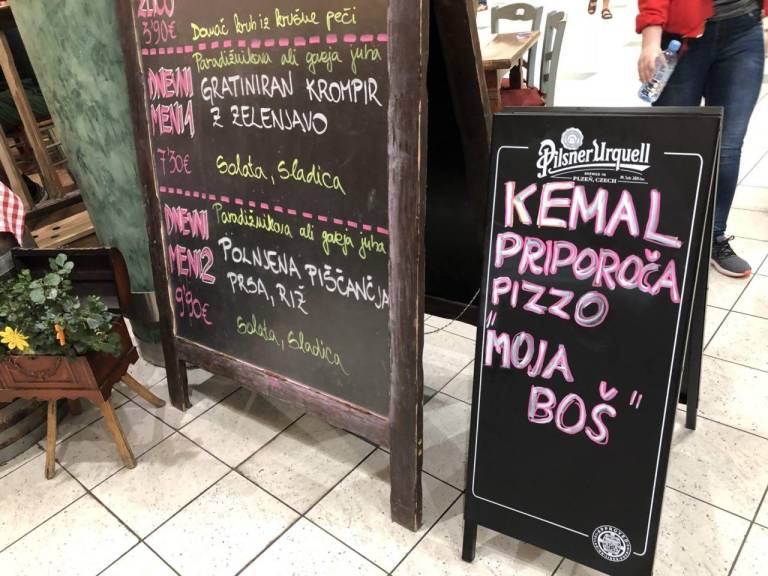 3'90€ Domač kruh iz krušne peči
DNEVNI MENI 1
Paradižnikova ali goveja juha
GRATINIRAN KROMPIR
Z ZELENJAVO
7'30€
Solata, Sladica
DNEVNI MENI 2
Paradižnikova ali goveja juha
POLNJENA PIŠČANČJA
PRSA, RIŽ
9'90€
Solata, Sladica
Pilsner Urquell
BREWED IN
PLZEŇ, CZECH
KEMAL
PRIPOROČA
PIZZO
"MOJA
BOŠ"